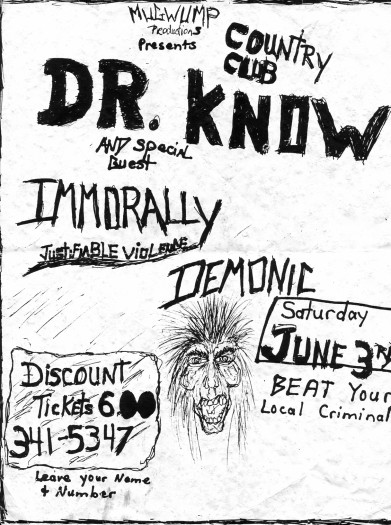 MUGWUMP
Productions
Presents
COUNTRY
CLUB
DR. KNOW
AND Special
Guest
IMMORALLY
JustiFiABLE VioLENCE
DEMONIC
Saturday
JUNE 3RD
BEAT Your
Local Criminal
Discount
Tickets 6.00
341-5347
Leave your Name
+ Number